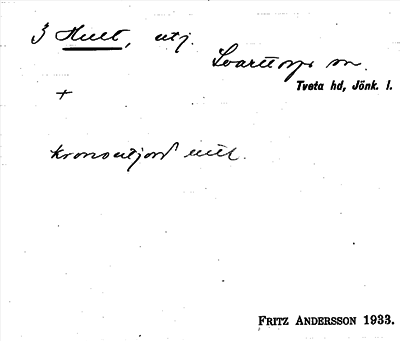 3 Hult, utj.
Svarttorps sn.
Tveta hd, Jönk. l.
+
kronoutjord
FRITZ ANDERSSON 1933.